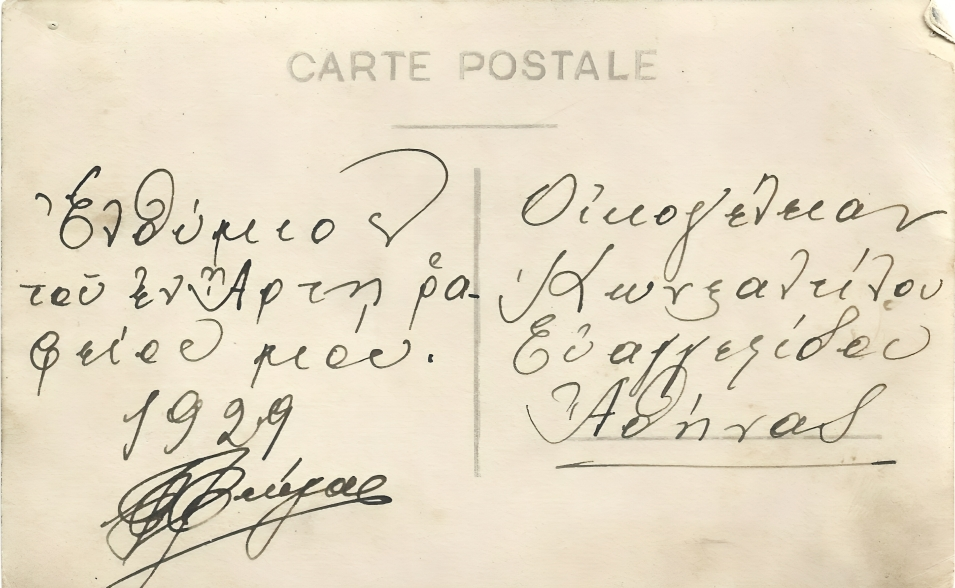 CARTE POSTALE
Ἐνθύμιον
τοῦ ἐν Ἄρτῃ ῥα-
φείου μου.
1929
Οἰκογένειαν
Κωνσταντίνου
Εὐαγγελίδου
Ἀθήνας